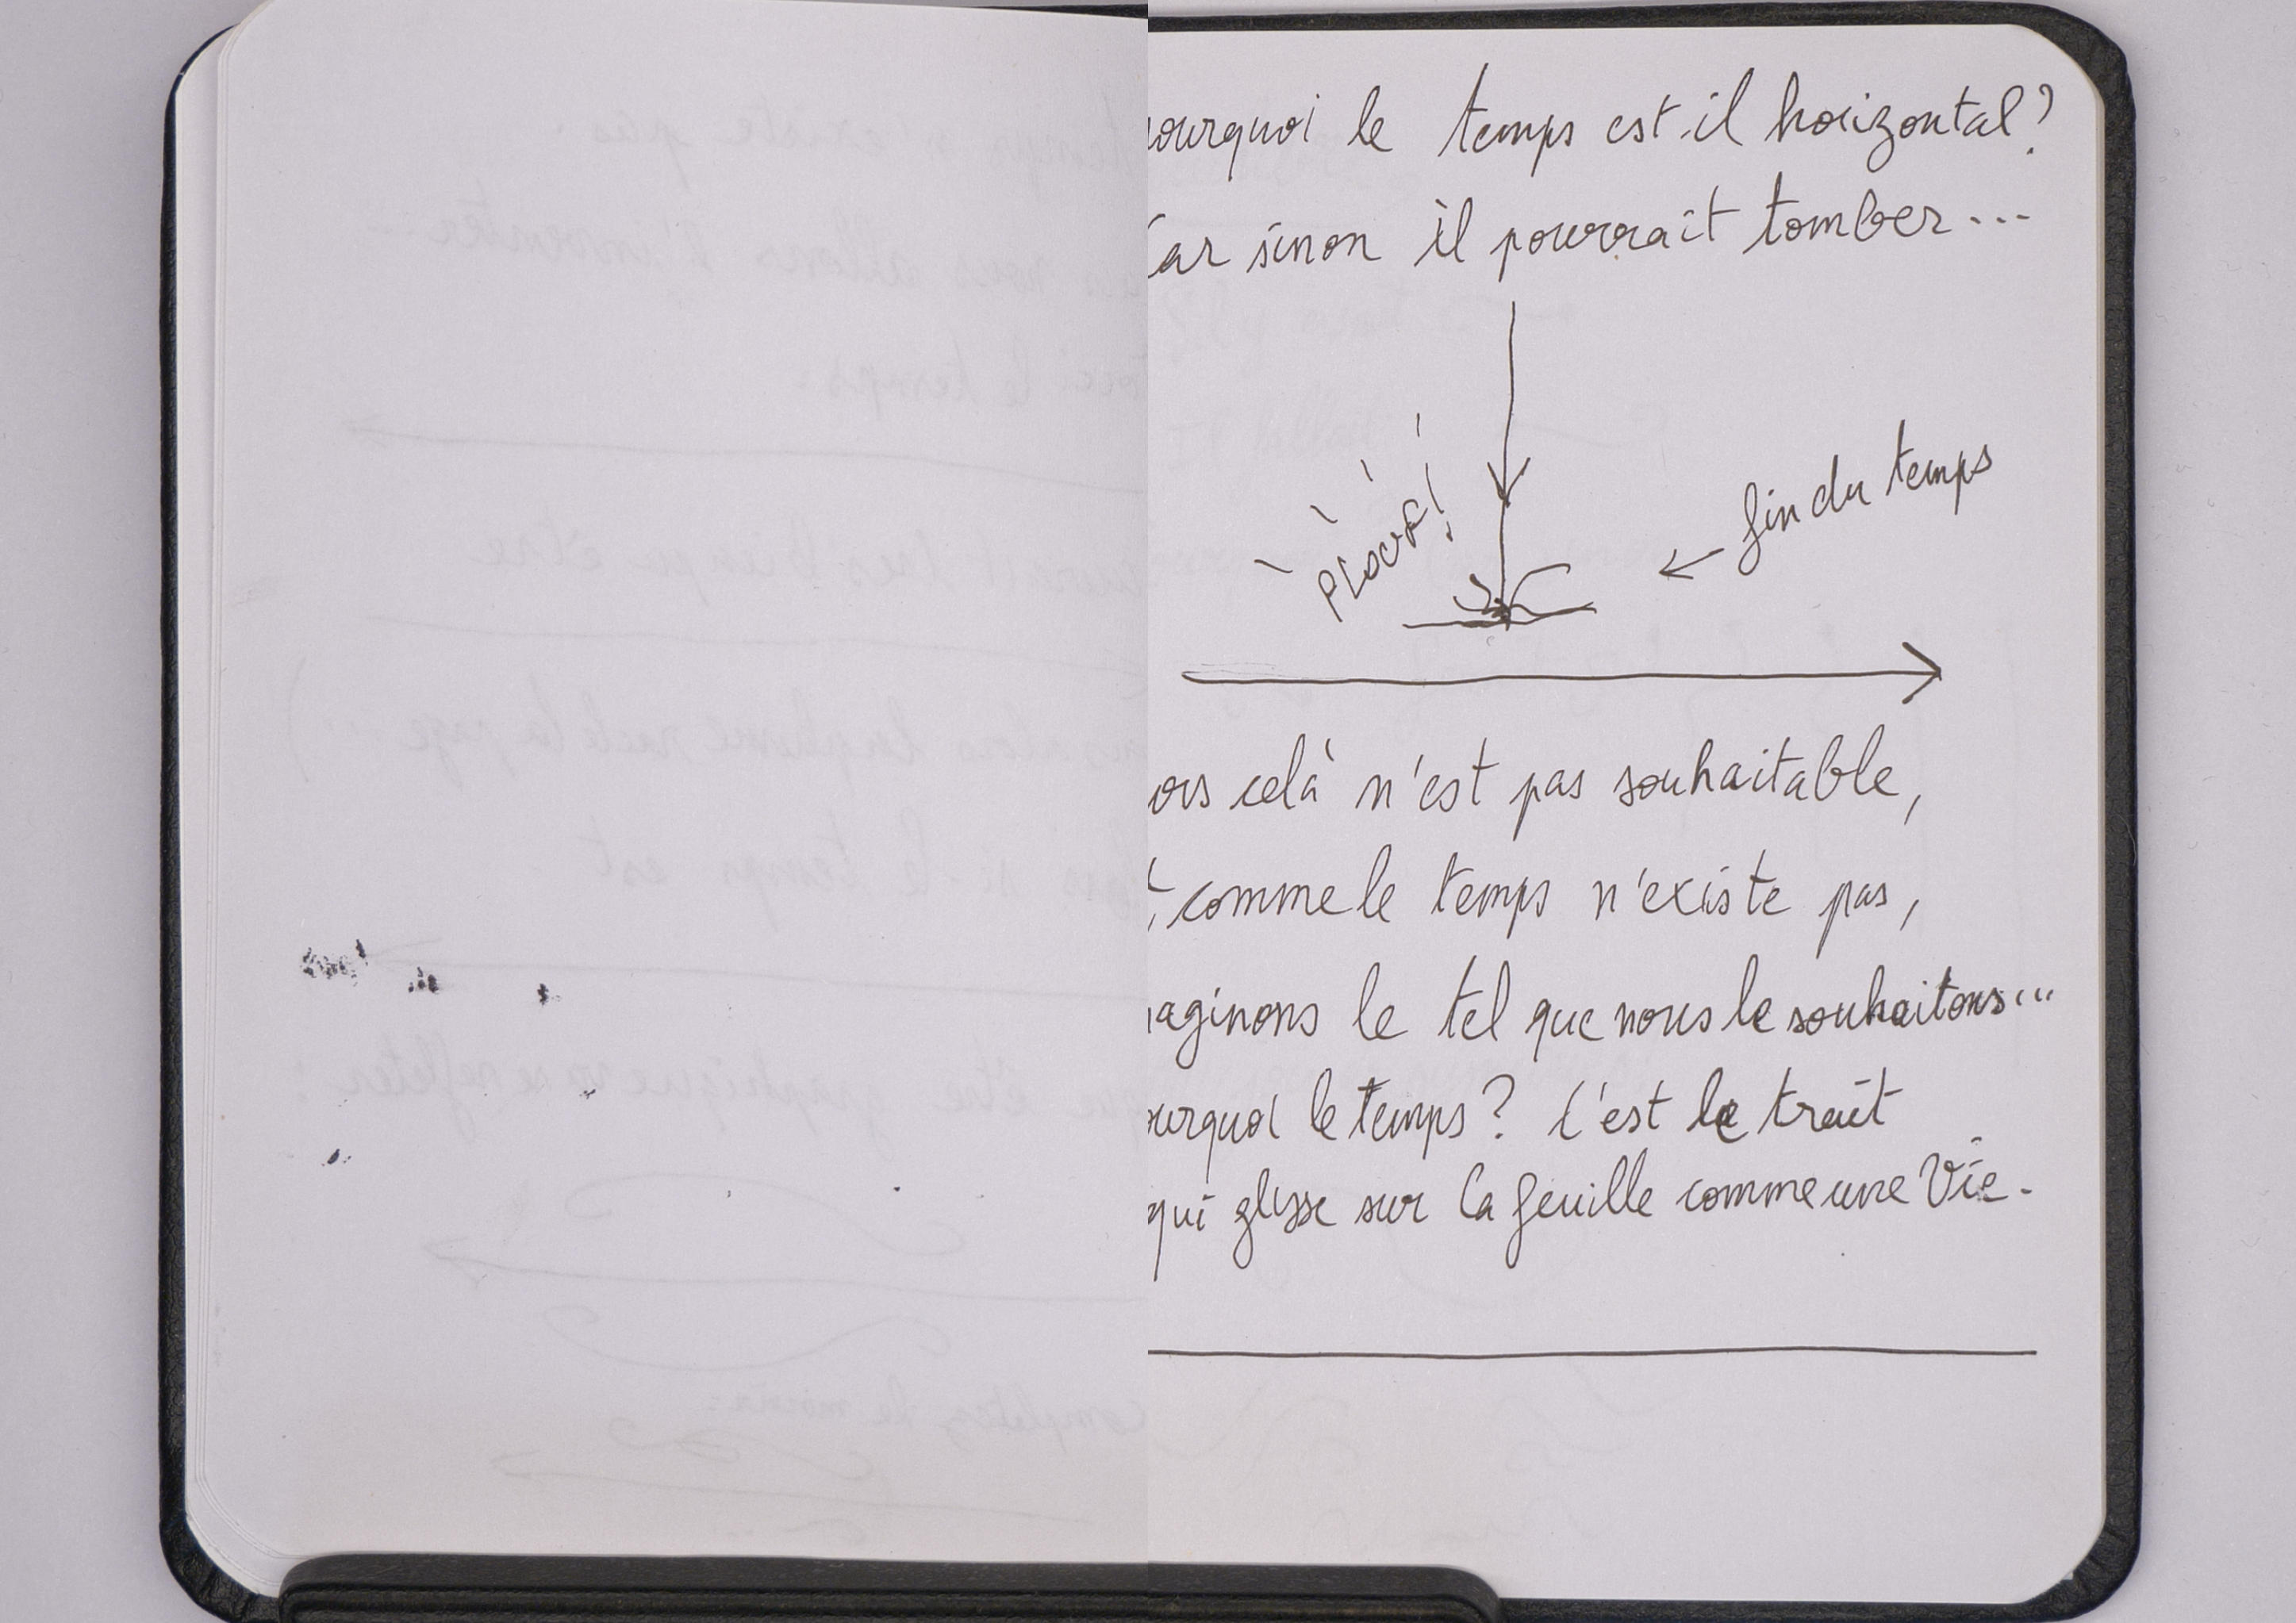 ourquoi le temps est-il horizontal?
ar sinon il pourrait tomber...
PLOUF!
← fin du temps
ors celà n'est pas souhaitable,
comme le temps n'existe pas,
aginons le tel que nous le souhaitons...
ourquoi le temps? C'est le trait
qui glisse sur la feuille comme une Vie.